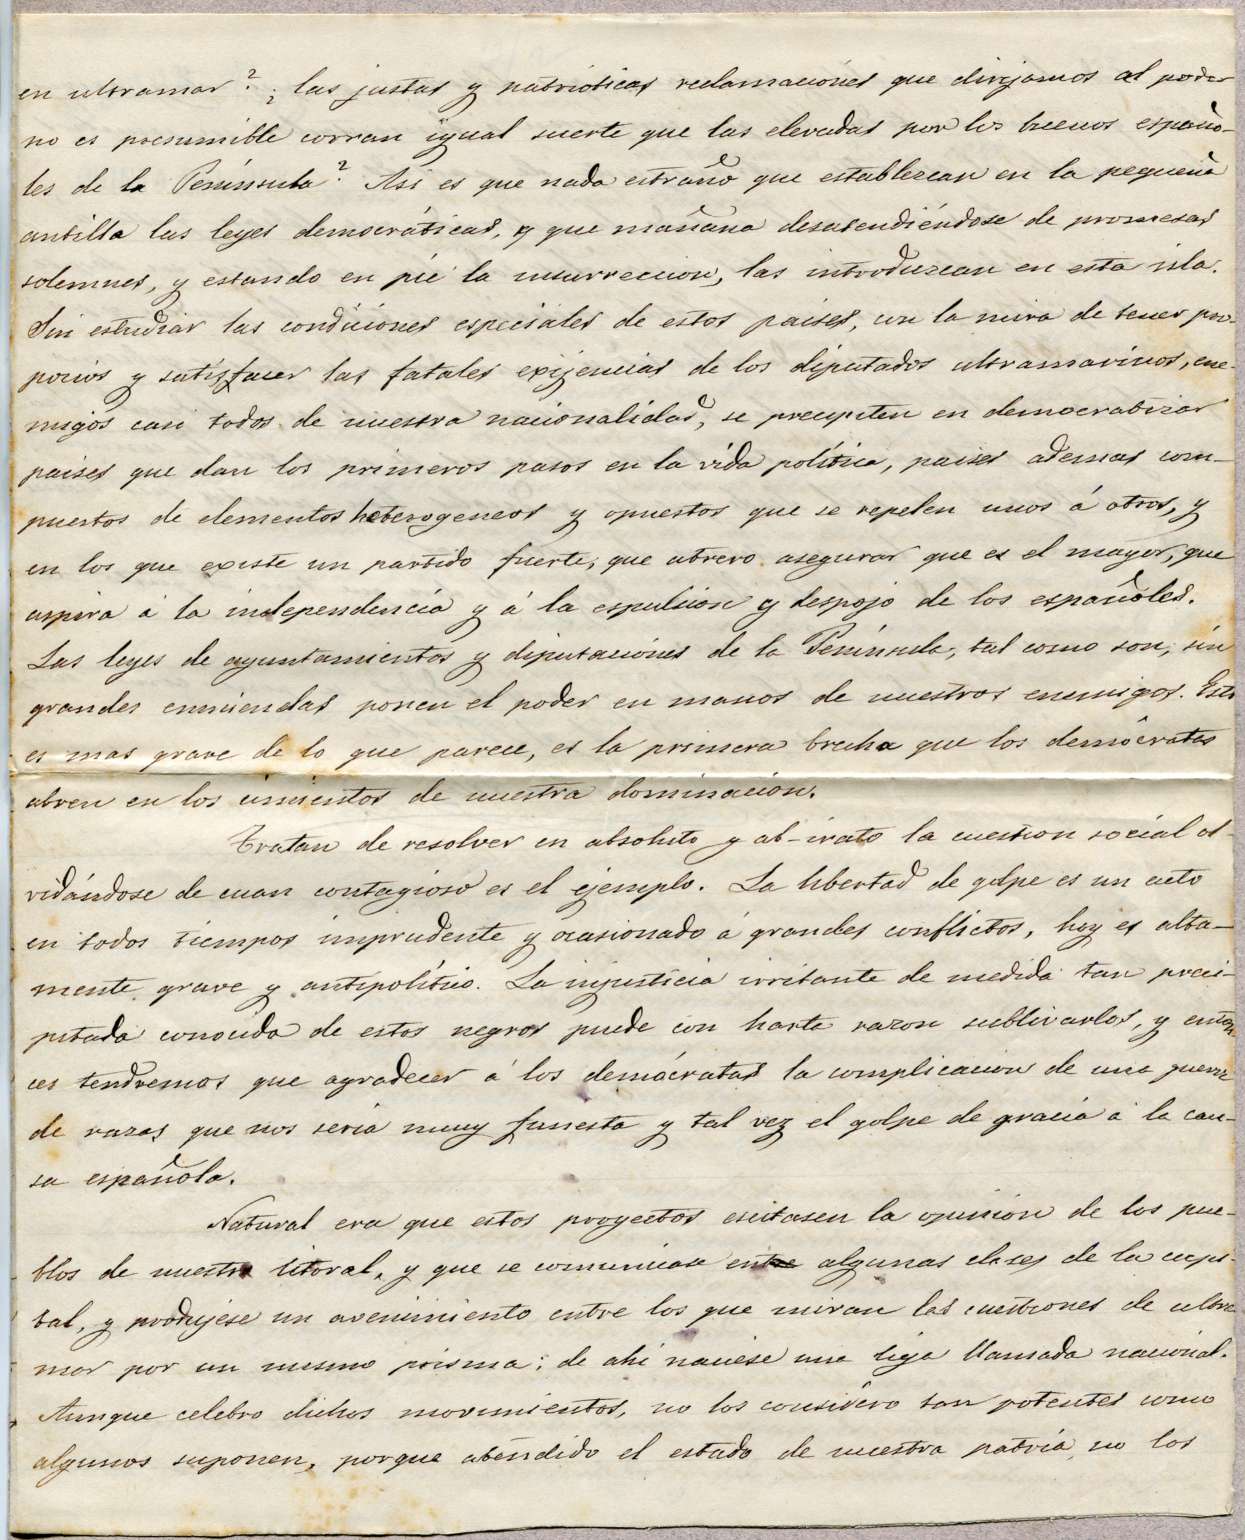 en ultramar? ¿las justas y patrióticas reclamaciónes que dirijamos al poder
no es presumible corran igual suerte que las elevadas por los buenos españo-
les de la Península? Asi es que nada estraño que establezcan en la pequeña
antilla las leyes democráticas, y que mañana desatendiéndose de promesas
solemnes, y estando en pié la insurreccion, las introduzcan en esta isla.
Sin estudiar las condiciones especiales de estos paises, con la mira de tener pro-
pocios y satisfacer las fatales exijencias de los diputados ultramarinos, ene-
migos casi todos de nuestra nacionalidad, se precipiten en democratizar
paises que dan los primeros pasos en la vida política, paises ademas com-
puestos de elementos heterogeneos y opuestos que se repelen unos á otros, y
en los que existe un partido fuerte, que atrevo asegurar que es el mayor, que
aspira á la independencia y á la espulsion y despojo de los españoles.
Las leyes de ayuntamientos y diputaciónes de la Península, tal como son, sin
grandes enmiendas ponen el poder en manos de nuestros enemigos. Esto
es mas grave de lo que parece, es la primera brecha que los demócratas
abren en los cimientos de nuestra dominación.
Tratan de resolver en absoluto y ab-irato la cuestion social ol-
vidándose de cuan contagioso es el ejemplo. La libertad de golpe es un acto
en todos tiempos imprudente y ocasionado á grandes conflictos, hoy es alta-
mente grave y antipolítico. La injusticia irritante de medida tan preci-
pitada conocida de estos negros puede con harta razon sublivarlos, y enton-
ces tendremos que agradecer á los demócratas la complicacion de una guerra
de razas que nos seria muy funesta y tal vez el golpe de gracia á la cau-
sa española.
Natural era que estos proyectos escitasen la opinión de los pue-
blos de nuestro litoral, y que se comunicase entre algunas clases de la capi-
tal, y prodújese un avenimiento entre los que miran las cuestiones de ultra-
mar por un mesmo prisma; de ahi naciese una liga llamada nacional.
Aunque celebro dichos movimientos, no los considero tan potentes como
algunos suponen, porque aténdido el estado de nuestra patria, no los